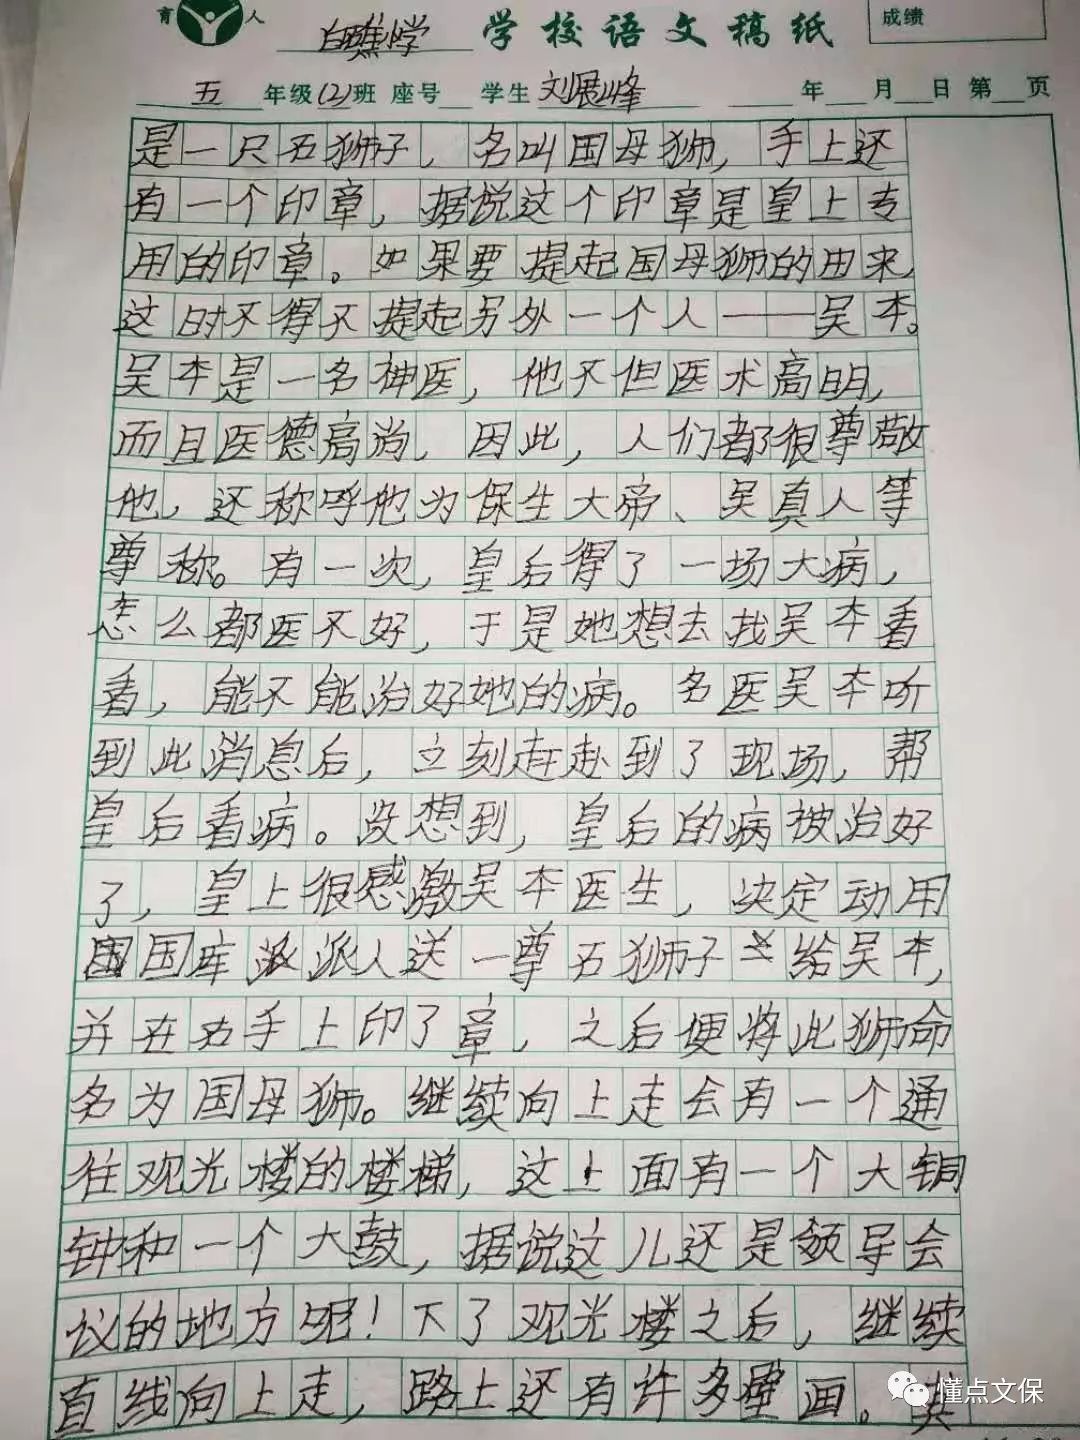 育 人
白礁小学 学校语文稿纸 成绩
五 年级(2)班 座号 学生 刘展峰 年 月 日 第 页
是一只石狮子，名叫国母狮，手上还
有一个印章，据说这个印章是皇上专
用的印章。如果要提起国母狮的由来
这时不得不提起另外一个人——吴本。
吴本是一名神医，他不但医术高明，
而且医德高尚，因此，人们都很尊敬
他，还称呼他为保生大帝、吴真人等
尊称。有一次，皇后得了一场大病，
怎么都医不好，于是她想去找吴本看
看，能不能治好她的病。名医吴本听
到此消息后，立刻赶赴到了现场，帮
皇后看病。没想到，皇后的病被治好
了，皇上很感激吴本医生，决定动用
国库派人送一尊石狮子给吴本，
并在右手上印了章，之后便将此狮命
名为国母狮。继续向上走会有一个通
往观光楼的楼梯，这上面有一个大铜
钟和一个大鼓，据说这儿还是领导会
议的地方呢！下了观光楼之后，继续
直线向上走，路上还有许多壁画。其
懂点文保